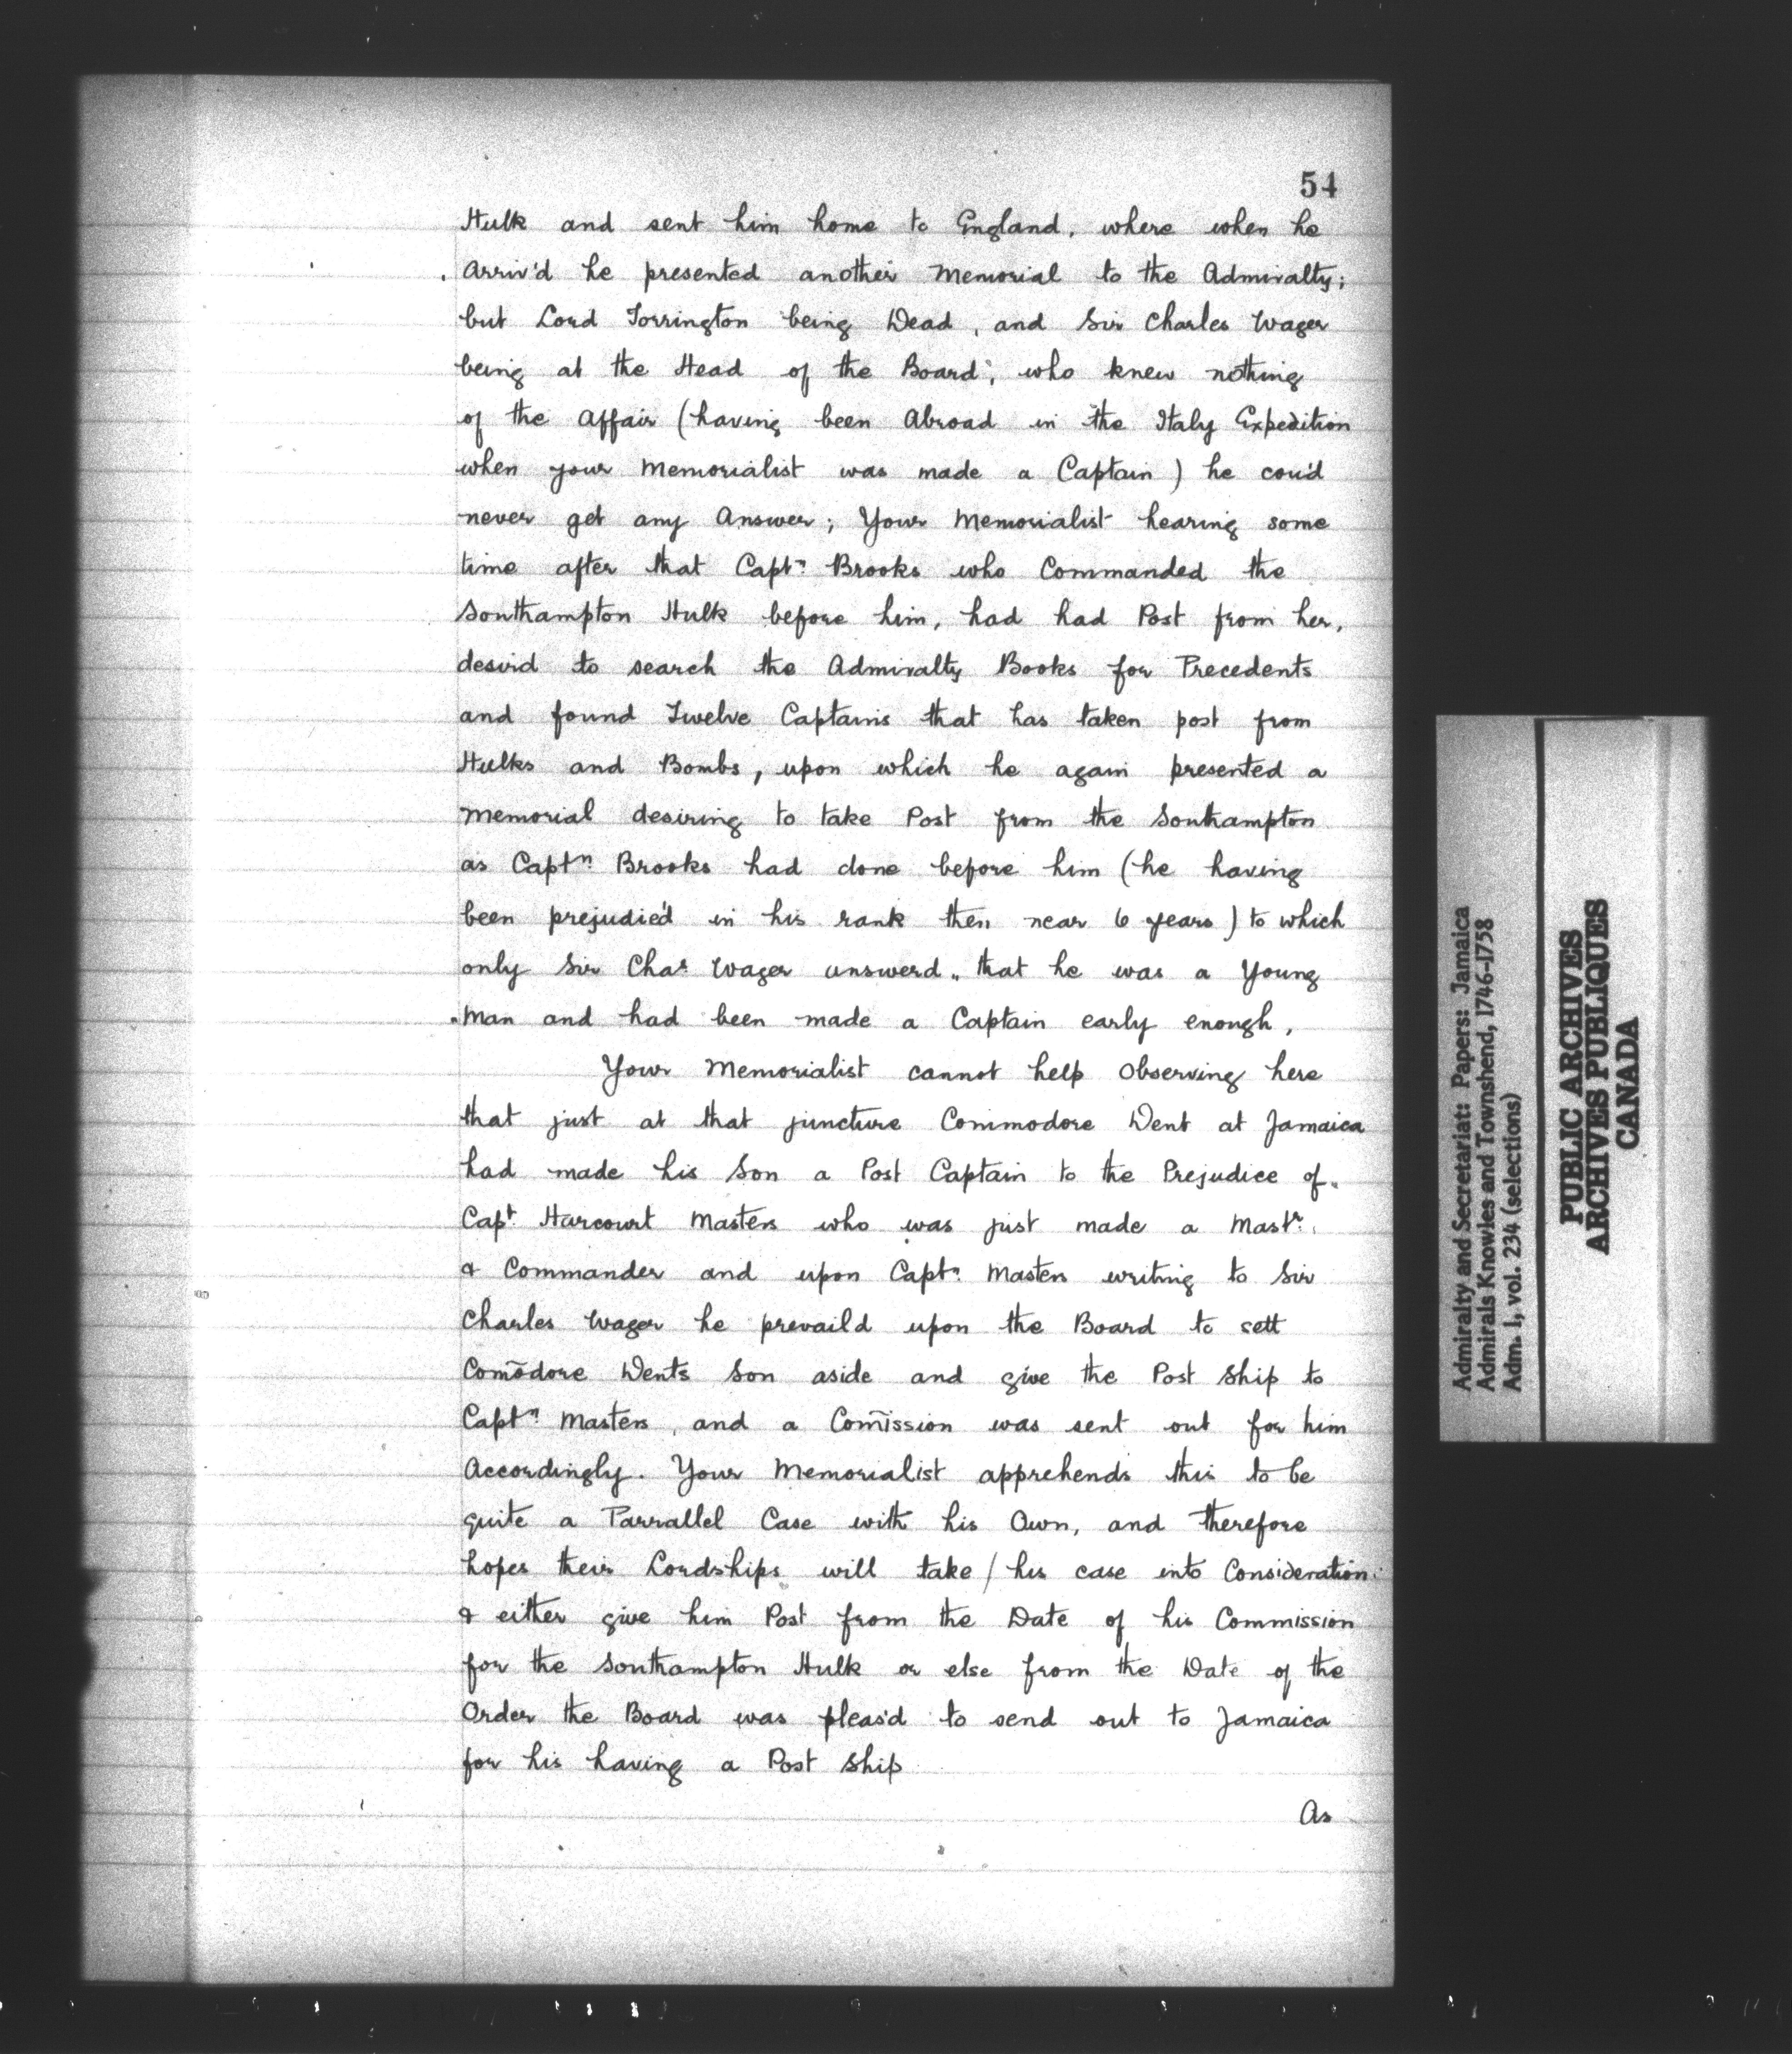 54
Hulk and sent him home to England, where when he
Arriv'd he presented another Memorial to the Admiralty;
but Lord Torrington being Dead, and Sir Charles Wager
being at the Head of the Board, who knew nothing
of the Affair (having been Abroad in the Italy Expedition
when your Memorialist was made a Captain) he cou'd
never get any Answer; Your Memorialist hearing some
time after that Captn. Brooks who Commanded the
Southampton Hulk before him, had had Post from her,
desird to search the Admiralty Books for Precedents
and found Twelve Captains that has taken post from
Hulks and Bombs, upon which he again presented a
Memorial desiring to take Post from the Southampton
as Captn. Brooks had done before him (he having
been prejudic'd in his rank then near 6 years) to which
only Sir Chas. Wager answerd „ that he was a Young
„ Man and had been made a Captain early enough,
Your Memorialist cannot help Observing here
that just at that juncture Commodore Dent at Jamaica
had made his Son a Post Captain to the Prejudice of
Capt. Harcourt Masters who was just made a Mastr.
& Commander and upon Captn. Masters writing to Sir
Charles Wager he prevaild upon the Board to sett
Com̄odore Dents Son aside and give the Post Ship to
Captn. Masters, and a Com̄ission was sent out for him
Accordingly. Your Memorialist apprehends this to be
quite a Parrallel Case with his Own, and therefore
hopes their Lordships will take / his case into Consideration
& either give him Post from the Date of his Commission
for the Southampton Hulk or else from the Date of the
Order the Board was pleas'd to send out to Jamaica
for his having a Post Ship
As
Admiralty and Secretariat: Papers: Jamaica
Admirals Knowles and Townshend, 1746-1758
Adm. 1, vol. 234 (selections)
PUBLIC ARCHIVES
ARCHIVES PUBLIQUES
CANADA